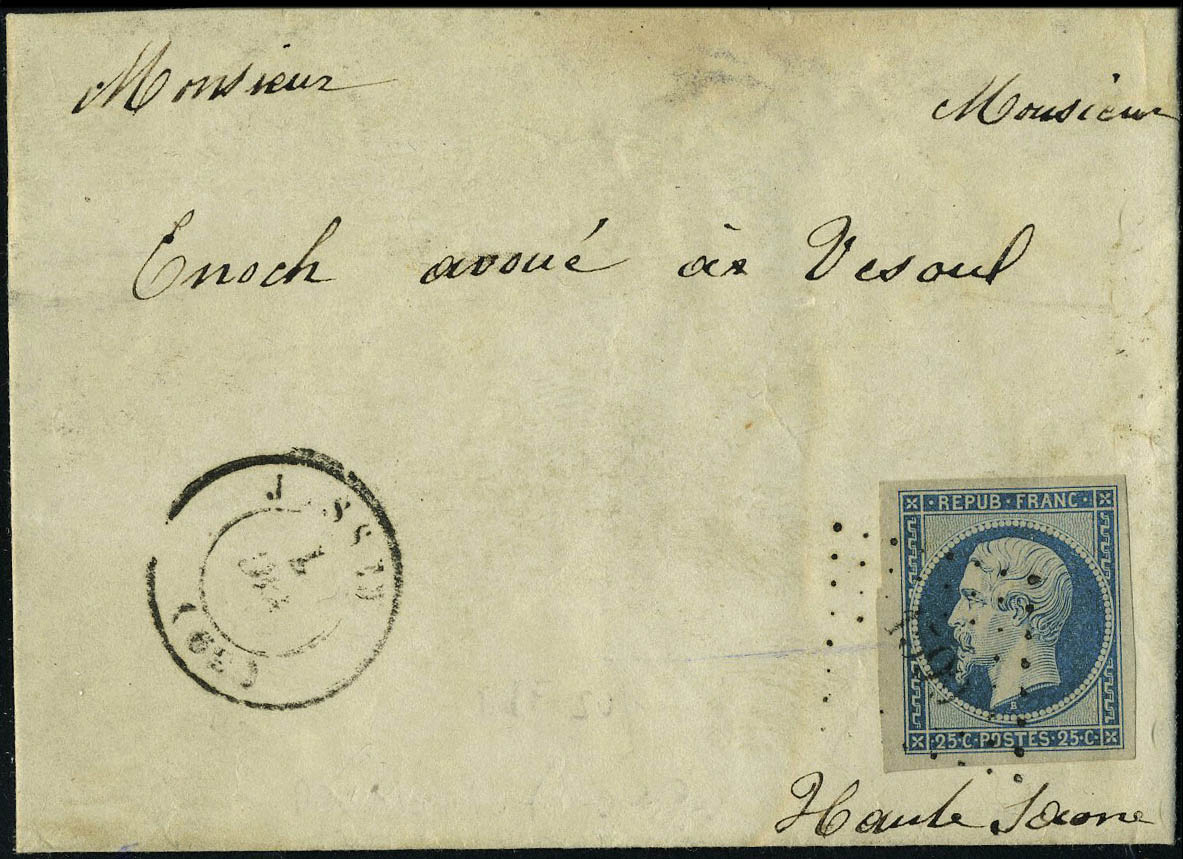 Monsieur Monsieur
Enoch avoué à Vesoul
REPUB·FRANC·
B
25·C·POSTES·25·C·
Haute Saone